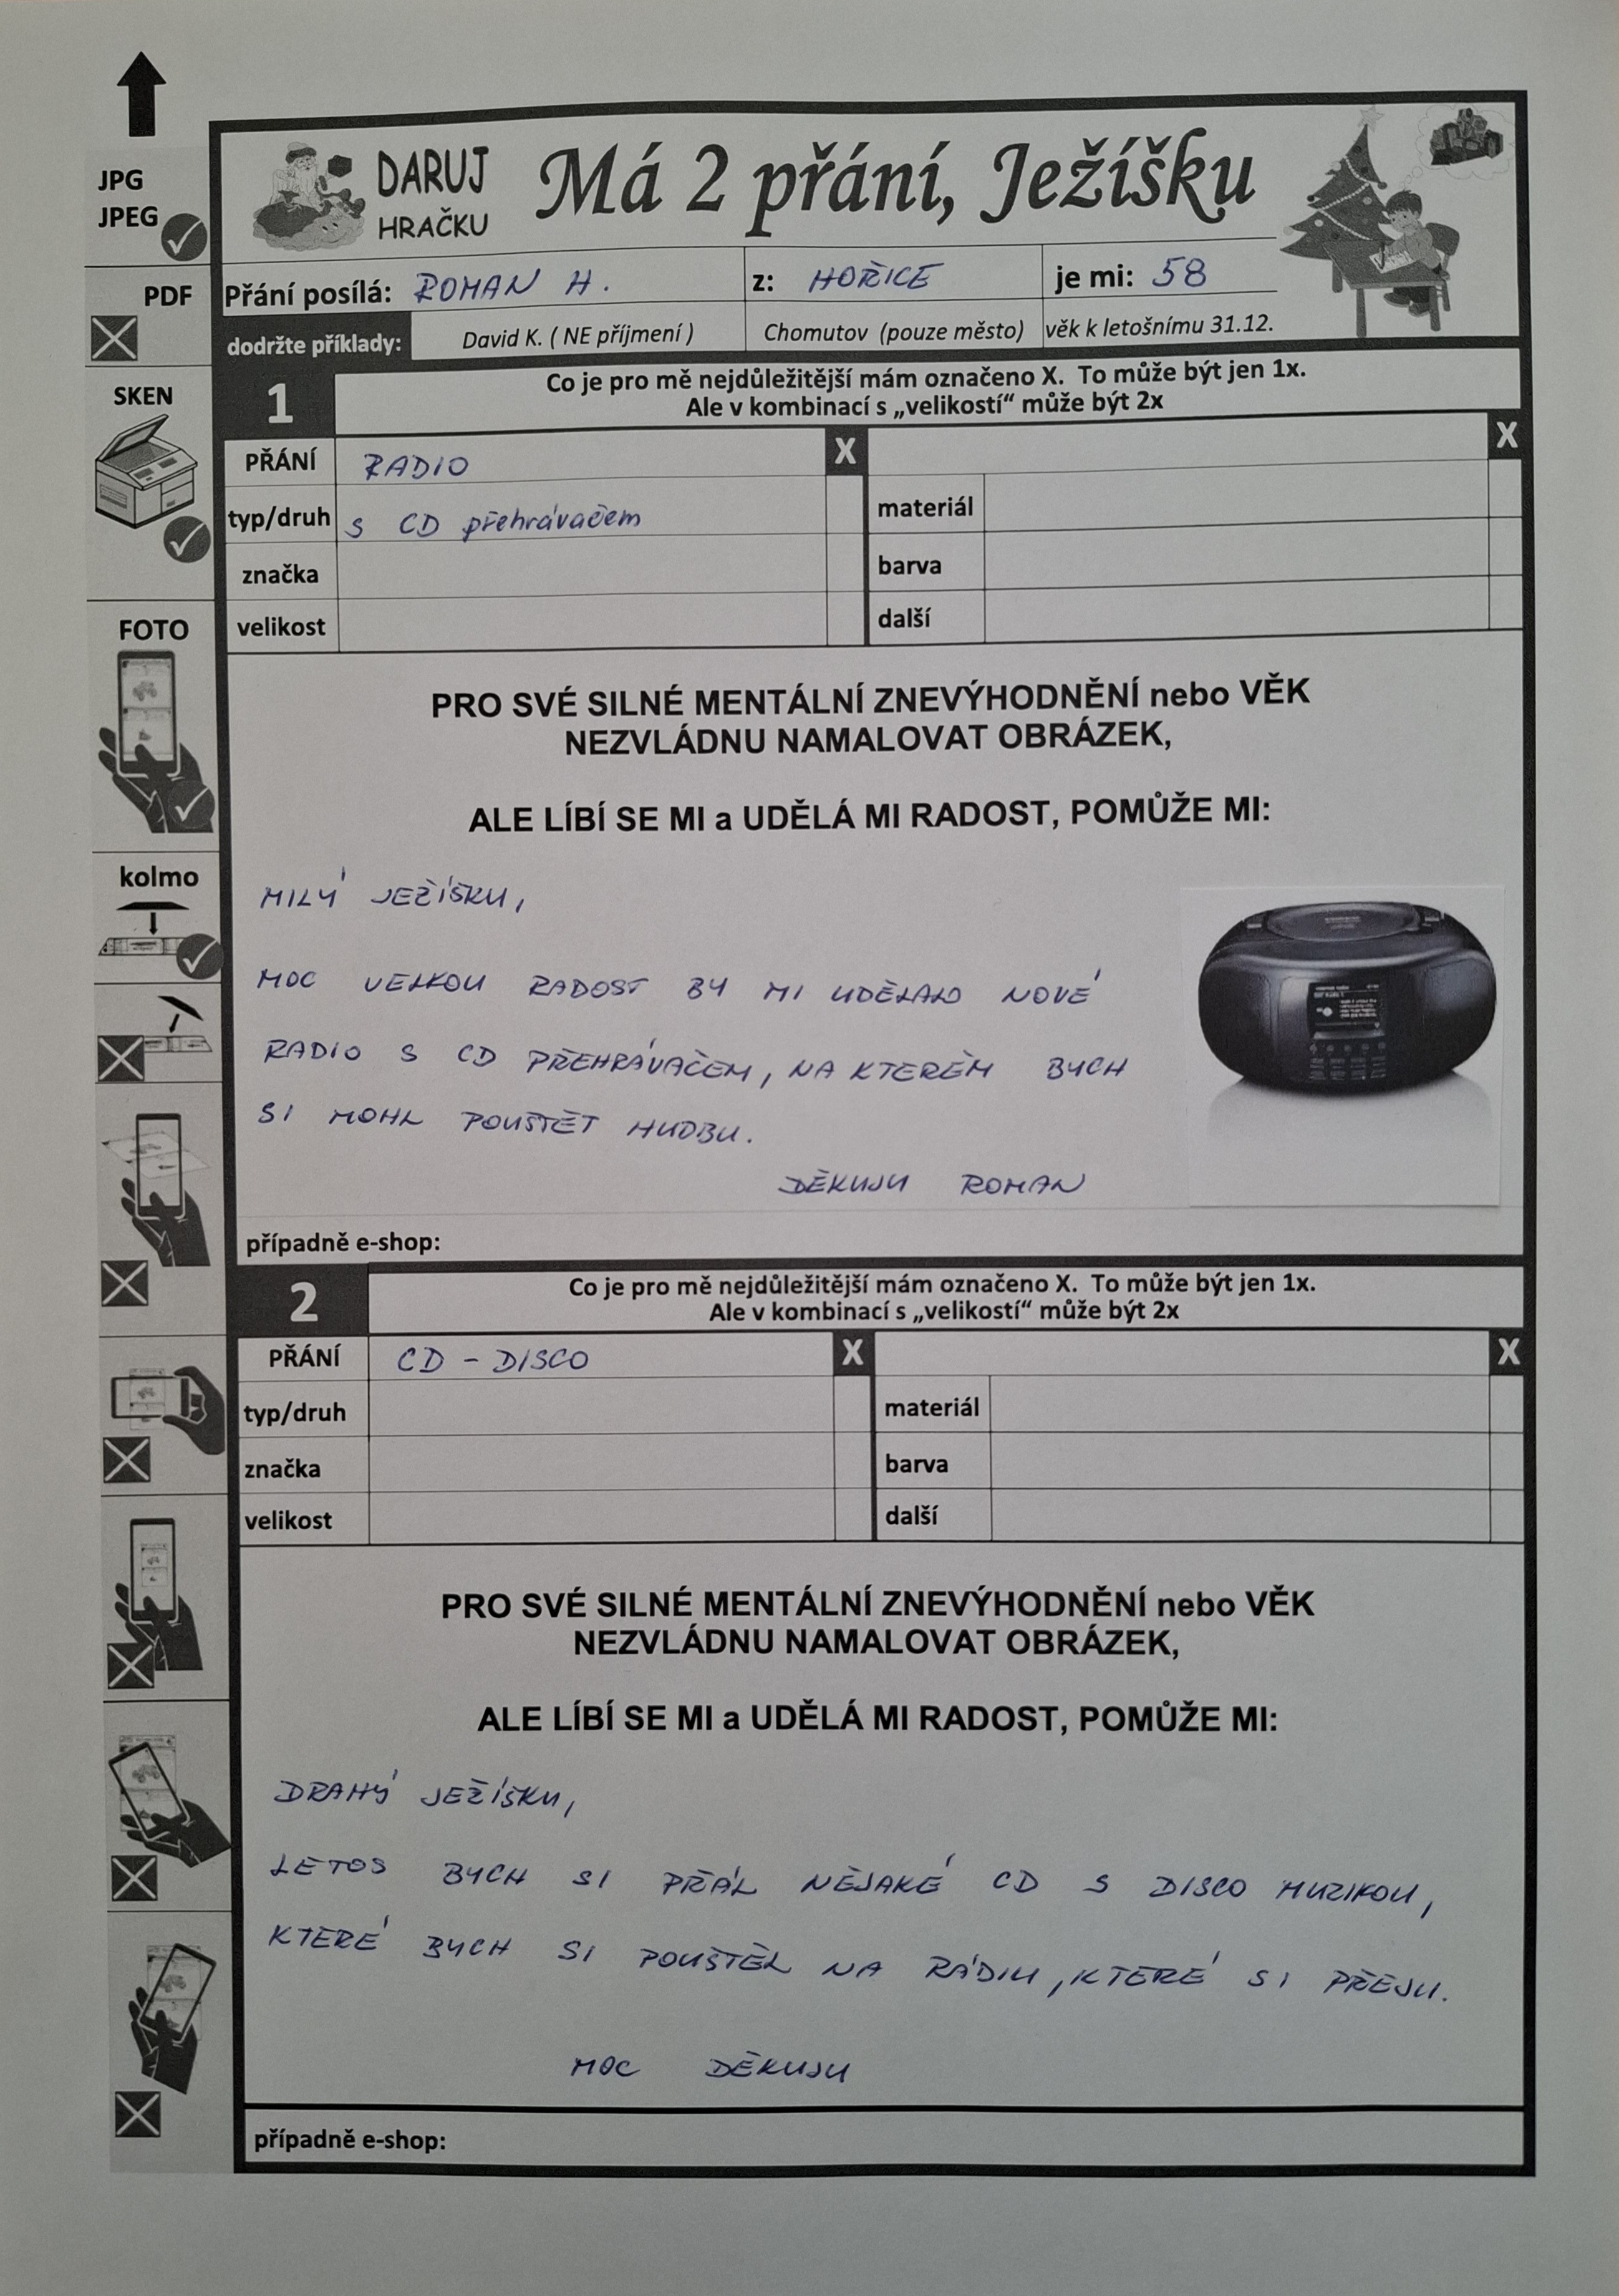 JPG
JPEG
PDF
SKEN
FOTO
kolmo
DARUJ
HRAČKU
Má 2 přání, Ježíšku
Přání posílá: ROMAN H. z: HOŘICE je mi: 58
dodržte příklady: David K. ( NE příjmení ) Chomutov (pouze město) věk k letošnímu 31.12.
1
Co je pro mě nejdůležitější mám označeno X. To může být jen 1x.
Ale v kombinací s „velikostí“ může být 2x
PŘÁNÍ RADIO X X
typ/druh s CD přehrávačem materiál
značka barva
velikost další
PRO SVÉ SILNÉ MENTÁLNÍ ZNEVÝHODNĚNÍ nebo VĚK
NEZVLÁDNU NAMALOVAT OBRÁZEK,
ALE LÍBÍ SE MI a UDĚLÁ MI RADOST, POMŮŽE MI:
MILÝ JEŽÍŠKU,
MOC VELKOU RADOST BY MI UDĚLALO NOVÉ
RADIO S CD PŘEHRÁVAČEM, NA KTERÉM BYCH
SI MOHL POUŠTĚT HUDBU.
DĚKUJU ROMAN
případně e-shop:
2
Co je pro mě nejdůležitější mám označeno X. To může být jen 1x.
Ale v kombinací s „velikostí“ může být 2x
PŘÁNÍ CD - DISCO X X
typ/druh materiál
značka barva
velikost další
PRO SVÉ SILNÉ MENTÁLNÍ ZNEVÝHODNĚNÍ nebo VĚK
NEZVLÁDNU NAMALOVAT OBRÁZEK,
ALE LÍBÍ SE MI a UDĚLÁ MI RADOST, POMŮŽE MI:
DRAHÝ JEŽÍŠKU,
LETOS BYCH SI PŘÁL NĚJAKÉ CD S DISCO MUZIKOU,
KTERÉ BYCH SI POUŠTĚL NA RÁDIU, KTERÉ SI PŘEJU.
MOC DĚKUJU
případně e-shop: